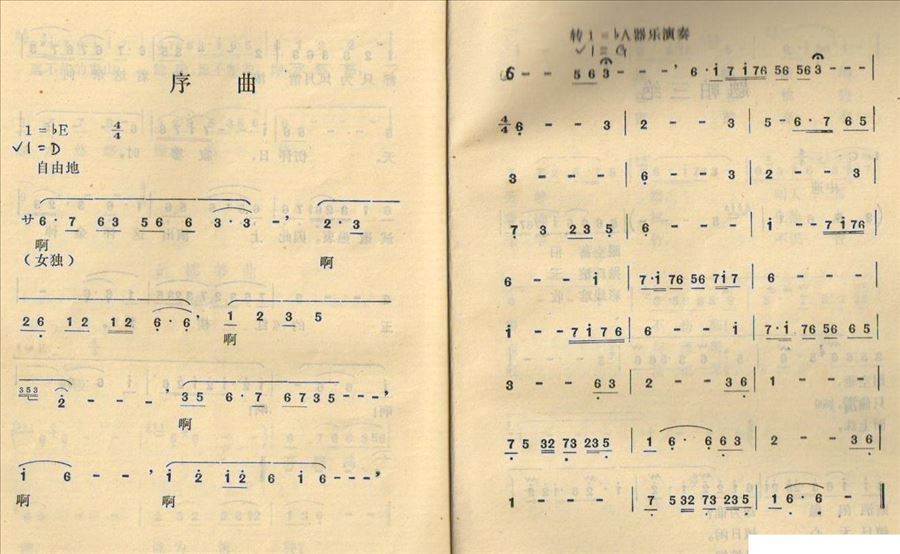 序 曲
1=♭E 4/4
√1=D
自由地
サ6·7 63 56 6 3·3--’ 2·3
啊 啊
(女独)
26 12 12 6·6· 1 2 3 5
啊
353 2---’ 35 6·7 6735--’
啊
1 6--’ 1 2 12 6 1 6---’
啊 啊
转1=♭A器乐演奏
√1=G
6-- 563---’ 6·i7i76 56 563--
4/4 6--3 | 2--3 | 5-6·7 65 |
3--- | 6--3 | 2--3 |
7 3 235 | 6--- | i--7i76 |
6--i | 7·i 76 56 7i7 | 6--- |
i--7i76 | 6--i | 7·i 76 56 65 |
3--63 | 2--36 | 1--- |
75 32 73 235 | 16·663 | 2--36 |
1--- | 7 532 73 235 | 16·6- ‖